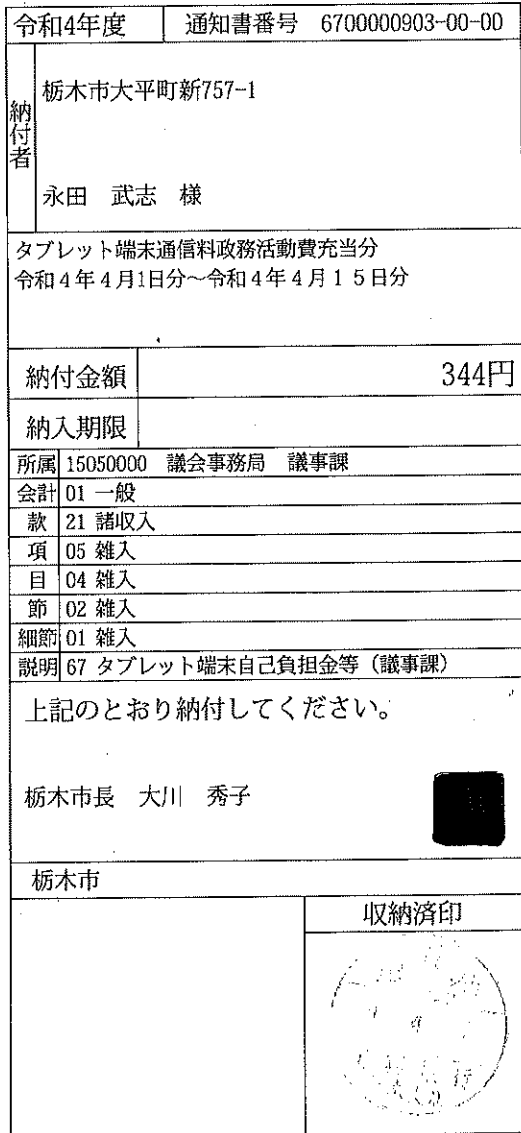 令和4年度 通知書番号 6700000903-00-00
納付者
栃木市大平町新757-1
永田 武志 様
タブレット端末通信料政務活動費充当分
令和4年4月1日分～令和4年4月15日分
納付金額 344円
納入期限
所属 15050000 議会事務局 議事課
会計 01 一般
款 21 諸収入
項 05 雑入
目 04 雑入
節 02 雑入
細節 01 雑入
説明 67 タブレット端末自己負担金等（議事課）
上記のとおり納付してください。
栃木市長 大川 秀子
栃木市
収納済印